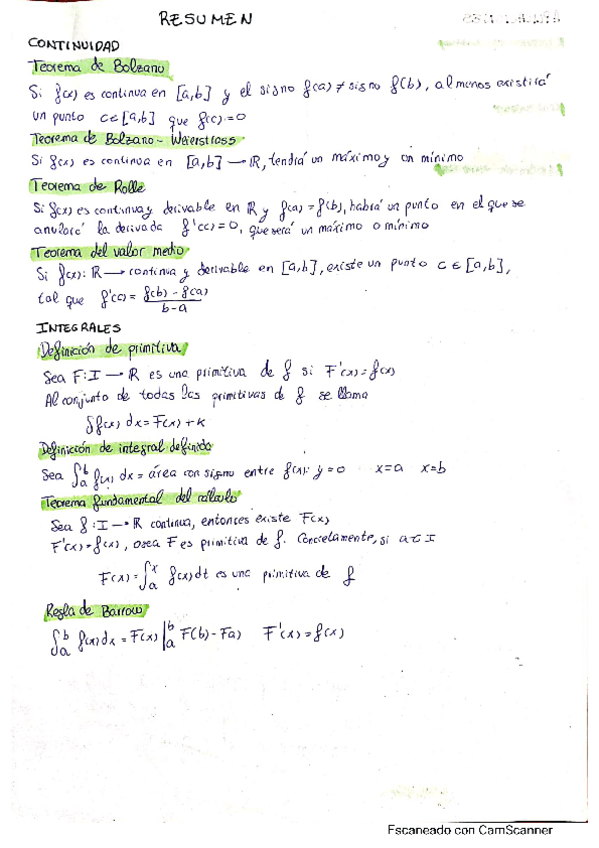 RESUMEN
CONTINUIDAD
Teorema de Bolzano
Si f(x) es continua en [a,b] y el signo f(a) ≠ signo f(b), al menos existirá
un punto c∈[a,b] que f(c)=0
Teorema de Bolzano - Weierstrass
Si f(x) es continua en [a,b] → ℝ, tendrá un máximo y un mínimo
Teorema de Rolle
Si f(x) es continua y derivable en ℝ y f(a) = f(b), habrá un punto en el que se
anulará la derivada f'(c)=0, que será un máximo o mínimo
Teorema del valor medio
Si f(x): ℝ → continua y derivable en [a,b], existe un punto c ∈ [a,b],
tal que f'(c) = f(b) - f(a) / b-a
INTEGRALES
Definición de primitiva
Sea F: I → ℝ es una primitiva de f si F'(x) = f(x)
Al conjunto de todas las primitivas de f se llama
∫f(x) dx = F(x) + K
Definición de integral definida
Sea ∫_a^b f(x) dx = área con signo entre f(x): y=0 x=a x=b
Teorema fundamental del cálculo
Sea f: I → ℝ continua, entonces existe F(x)
F'(x) = f(x), osea F es primitiva de f. Concretamente, si a∈I
F(x) = ∫_a^x f(x)dt es una primitiva de f
Regla de Barrow
∫_a^b f(x)dx = F(x) |_a^b F(b) - Fa) F'(x) = f(x)
Escaneado con CamScanner